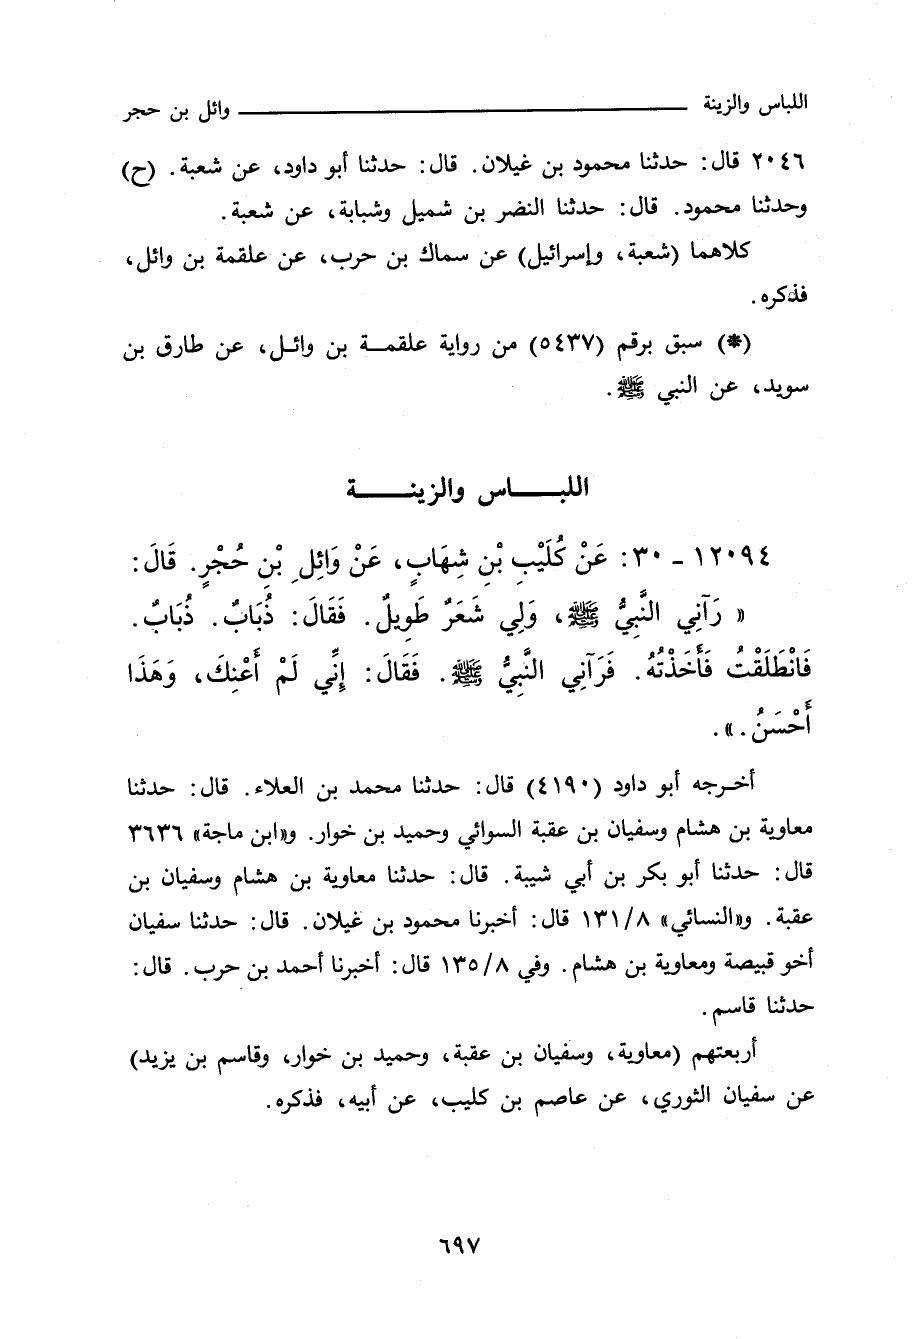 اللباس والزينة ــــــــــــــــــــــــــــــــــــــــ وائل بن حجر
٢٠٤٦ قال: حدثنا محمود بن غيلان. قال: حدثنا أبو داود، عن شعبة. (ح)
وحدثنا محمود. قال: حدثنا النضر بن شميل وشبابة، عن شعبة.
كلاهما (شعبة، وإسرائيل) عن سماك بن حرب، عن علقمة بن وائل،
فذكره.
(*) سبق برقم (٥٤٣٧) من رواية علقمــة بن وائـل، عن طارق بن
سويد، عن النبي ﷺ.
اللبـــــاس والزينـــــة
١٢٠٩٤ - ٣٠: عَنْ كُلَيْبِ بْنِ شِهَابٍ، عَنْ وَائِلِ بْنِ حُجْرٍ. قَالَ:
« رَآنِي النَّبِيُّ ﷺ، وَلِي شَعَرٌ طَوِيلٌ. فَقَالَ: ذُبَابٌ. ذُبَابٌ.
فَانْطَلَقْتُ فَأَخَذْتُهُ. فَرَآنِي النَّبِيُّ ﷺ. فَقَالَ: إِنِّي لَمْ أَعْنِكَ، وَهَذَا
أَحْسَنُ.».
أخـرجه أبو داود (٤١٩٠) قال: حدثنا محمد بن العلاء. قال: حدثنا
معاوية بن هشام وسفيان بن عقبة السوائي وحميد بن خوار. و«ابن ماجة» ٣٦٣٦
قال: حدثنا أبو بكر بن أبي شيبة. قال: حدثنا معاوية بن هشام وسفيان بن
عقبة. و«النسائي» ١٣١/٨ قال: أخبرنا محمود بن غيلان. قال: حدثنا سفيان
أخو قبيصة ومعاوية بن هشام. وفي ١٣٥/٨ قال: أخبرنا أحمد بن حرب. قال:
حدثنا قاسم.
أربعتهم (معاوية، وسفيان بن عقبة، وحميد بن خوار، وقاسم بن يزيد)
عن سفيان الثوري، عن عاصم بن كليب، عن أبيه، فذكره.
٦٩٧